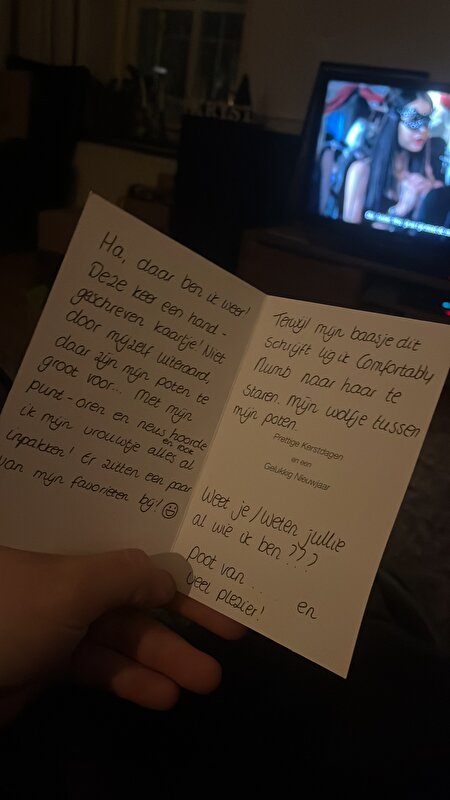 Ha, daar ben ik weer!
Deze keer een hand-
geschreven kaartje! Niet
door mijzelf uiteraard,
daar zijn mijn poten te
groot voor... Met mijn
punt-oren en neus hoorde
en rook
ik mijn vrouwtje alles al
inpakken! Er zitten een paar
van mijn favorieten bij! 😃
Terwijl mijn baasje dit
schrijft lig ik Comfortably
Numb naar haar te
staren. Mijn wolfje tussen
mijn poten.
Prettige Kerstdagen
en een
Gelukkig Nieuwjaar
Weet je/weten jullie
al wie ik ben???
poot van ..... en
veel plezier!